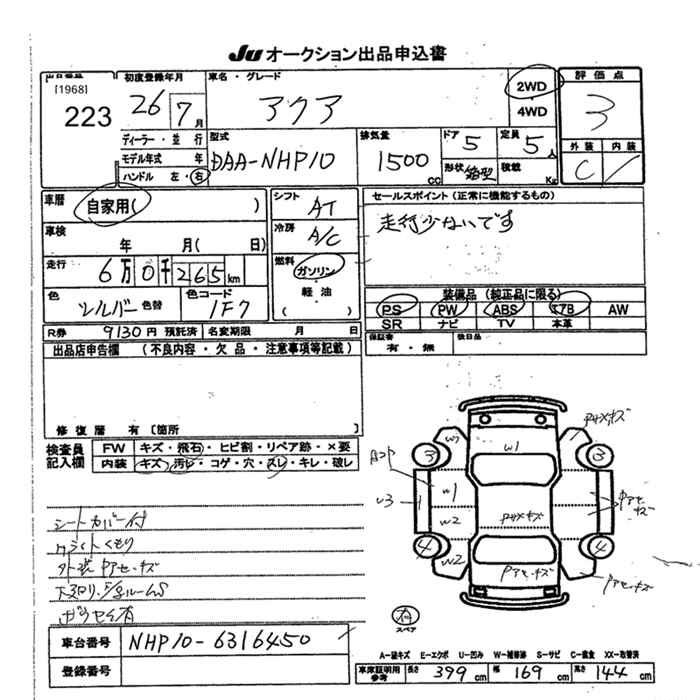 JU オークション出品申込書
出品番号
[1968]
223
初度登録年月
26 7月
車名・グレード
アクア
2WD
4WD
評価点
3
外装 内装
C
ディーラー・並行
モデル年式 年
ハンドル 左・右
型式
DAA-NHP10
排気量
1500 CC
ドア 5
定員 5 人
形状 箱型
積載 Kg
車歴
自家用( )
車検
年 月( 日)
走行
6万0千265km
色
シルバー 色替
色コード
1F7
シフト
AT
冷房
A/C
燃料
ガソリン
軽油
( )
セールスポイント (正常に機能するもの)
走行少ないです
装備品 (純正品に限る)
PS PW ABS エアB AW
SR ナビ TV 本革
R券 9130円 預託済 名変期限 月 日
保証書 有・無
後日品
出品店申告欄 (不良内容・欠品・注意事項等記載)
修復歴 有 [箇所 ]
検査員記入欄
FW キズ・飛石・ヒビ割・リペア跡・×要
内装 キズ・汚レ・コゲ・穴・スレ・キレ・破レ
シートカバー付
ライトくもり
外装 Pアセ・キズ
ガラセイ有
車台番号 NHP10-6316450
登録番号
W1
3
3
1
W3
W1
W2
W2
4
4
Pアセ・キズ
Pアセ・キズ
有
スペア
A−線キズ E−エクボ U−凹み W−補修跡 S−サビ C−腐食 XX−取替済
車庫証明用参考 長さ 399 cm 幅 169 cm 高さ 144 cm